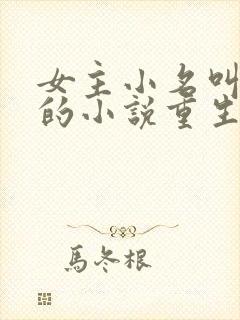 女主小名叫
的小説重生
馬冬根